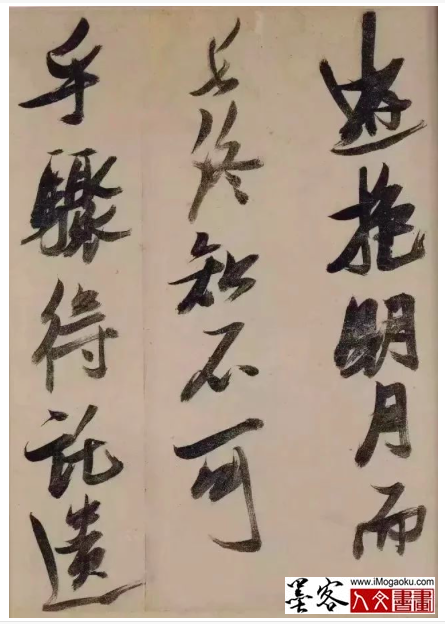 遊抱明月而
長終知不可
乎驟得託遺
墨客
www.iMogaoku.com
人文書畫